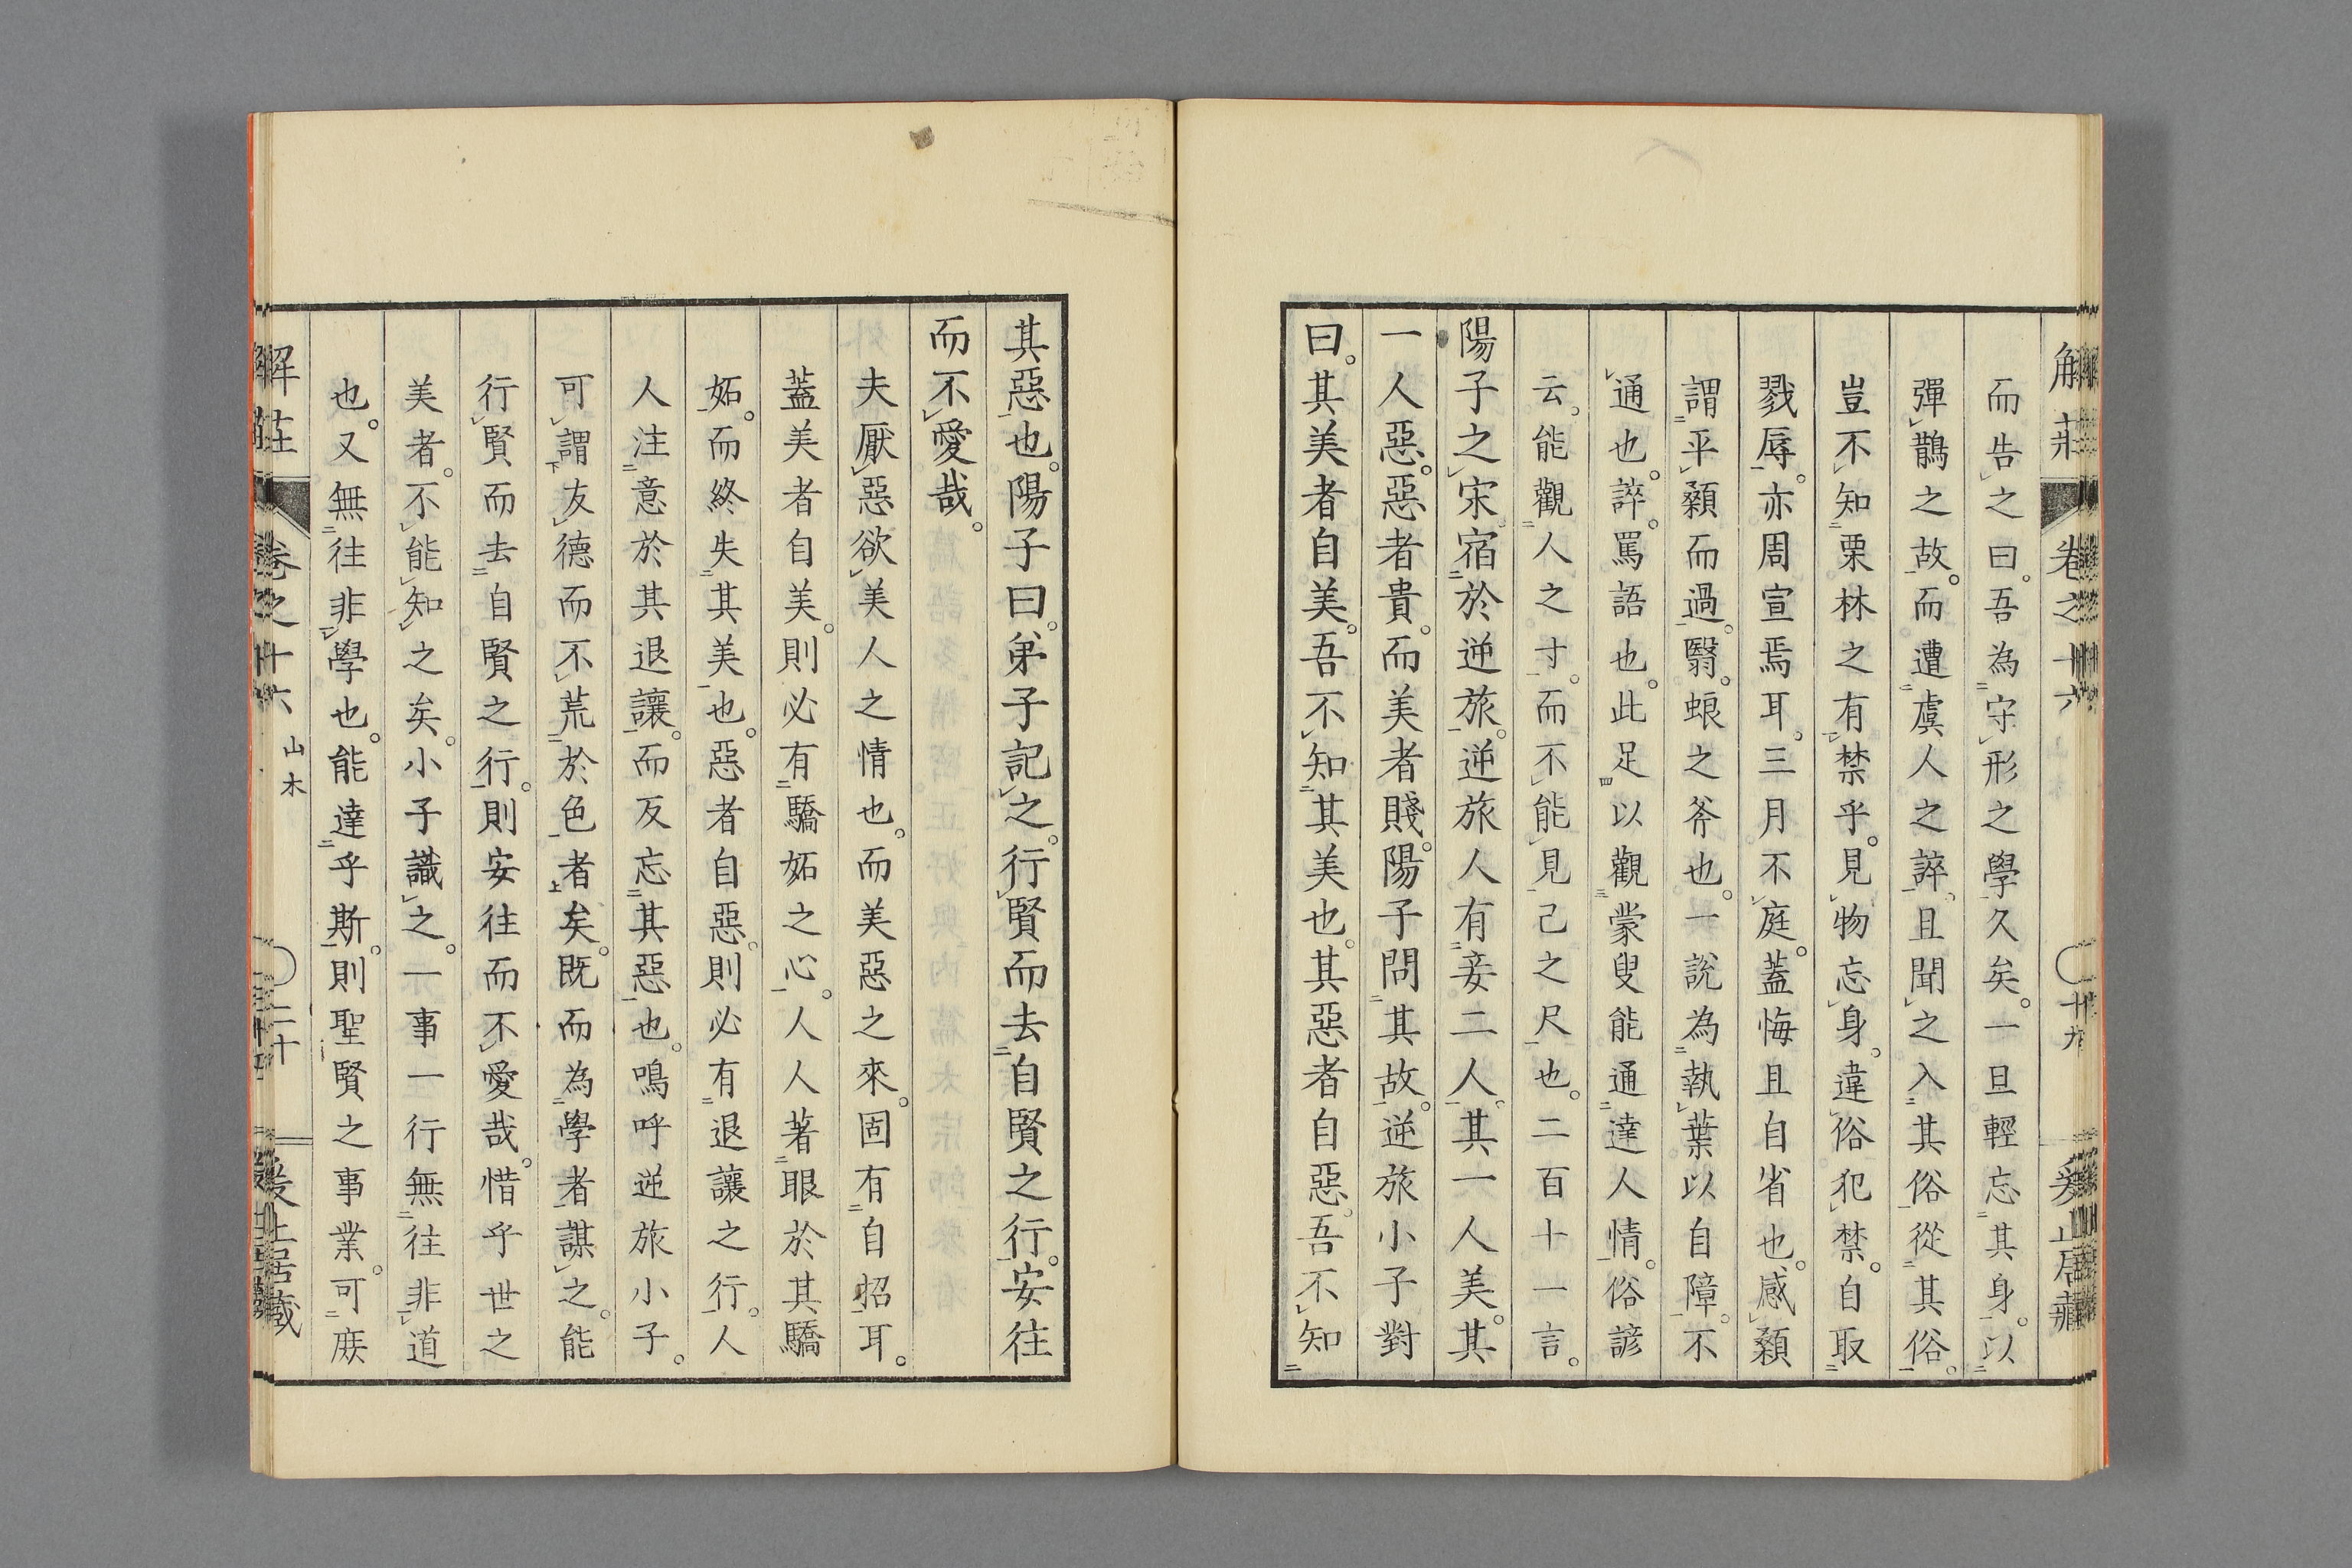 解莊 卷之十六 〇十九
而告之曰。吾為守形之學久矣。一旦輕忘其身。以
彈鵲之故。而遭虞人之誶。且聞之入其俗從其俗。
豈不知栗林之有禁乎。見物忘身。違俗犯禁。自取
戮辱。亦周宣焉耳。三月不庭。蓋悔且自省也。感顙
謂平顙而過。翳。蜋之斧也。一說為執葉以自障。不
通也。誶。罵語也。此足以觀蒙叟能通達人情。俗諺
云。能觀人之寸。而不能見己之尺也。二百十一言。
陽子之宋宿於逆旅。逆旅人有妾二人。其一人美。其
一人惡。惡者貴。而美者賤。陽子問其故。逆旅小子對
曰。其美者自美。吾不知其美也。其惡者自惡。吾不知
其惡也。陽子曰。弟子記之。行賢而去自賢之行。安往
而不愛哉。
夫厭惡欲美人之情也。而美惡之來。固有自招耳。
蓋美者自美。則必有驕妬之心。人人著眼於其驕
妬。而終失其美也。惡者自惡。則必有退讓之行。人
人注意於其退讓。而反忘其惡也。鳴呼逆旅小子。
可謂友德而不荒於色者矣。既而為學者謀之。能
行賢而去自賢之行。則安往而不愛哉。惜乎世之
美者。不能知之矣。小子識之。一事一行無往非道
也。又無往非學也。能達乎斯。則聖賢之事業。可庶
解莊 卷之十六 山木 〇二十